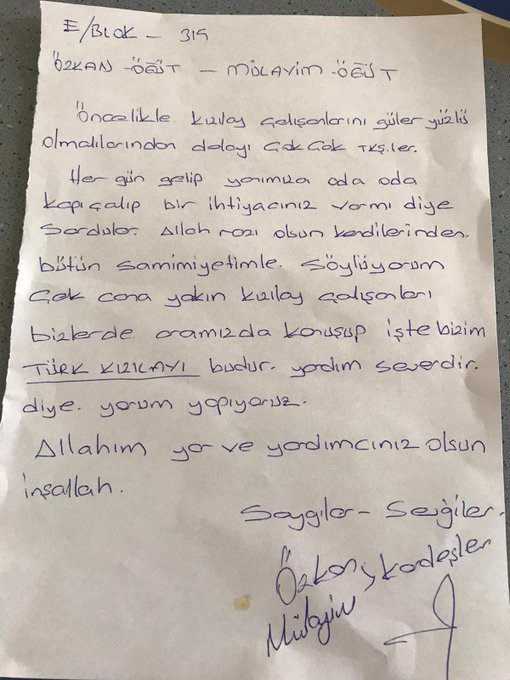 E/BLOK - 315
ÖZKAN ÖĞÜT - MÜLAYİM ÖĞÜT
Öncelikle kızılay çalışanlarını güler yüzlü
olmalılarından dolayı Çok Çok TKŞ.ler.
Her gün gelip yanımıza oda oda
kapı çalıp bir ihtiyacınız varmı diye
Sordular. Allah razı olsun kendilerinden.
bütün samimiyetimle. Söylüyorum
Çok cana yakın kızılay çalışanları
bizlerde aramızda konuşup işte bizim
TÜRK KIZILAYI budur. yardım severdir.
diye. yorum yapıyoruz.
Allahım yar ve yardımcınız olsun
inşallah.
Saygılar - Sevgiler.
Özkan ve kardeşler
Mülayim